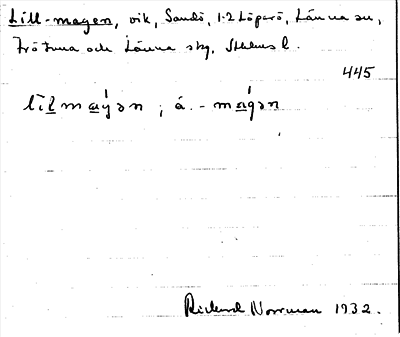 Lill-magen, vik, Sandö, 1-2 Löparö, Länna sn,
Frötuna och Länna skg, Sthlms l.
445
lìlmaγ́ən ; á. - mágən
Rickard Norrman 1932.